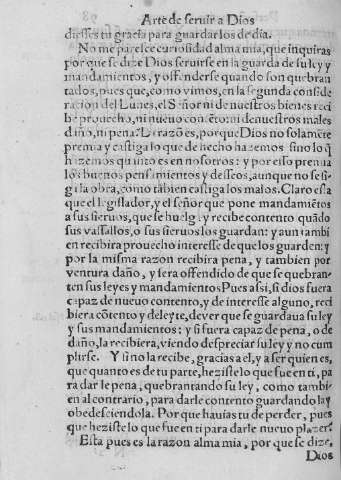 Arte de seruir a Dios
diesses tu gracia para guardarlos de dia.
No me parece curiosidad alma mia, que inquiras
por que se dize Dios seruirse en la guarda de su ley y
mandamientos, y offenderse quando son quebran
tados, pues que, como vimos, en la segunda conside
racion del Lunes, el Señor ni de nuestros bienes reci
be prouecho, ni nueuo contẽto ni de nuestros males
daño, ni pena? La razõ es, porque Dios no solamẽte
premia y castiga lo que de hecho hazemos sino lo q̃
hazemos quanto es en nosotros: y por esso premia
los buenos pensamientos y desseos, aunque no se si-
ga la obra, como tãbien castiga los malos. Claro esta
que el legislador, y el señor que pone mandamiẽtos
a sus sieruos, que se huelga y recibe contento quãdo
sus vassallos, o sus sieruos los guardan: y aun tambi
en recibira prouecho interesse de que los guarden: y
por la misma razon recibira pena, y tambien por
ventura daño, y sera offendido de que se quebran-
ten sus leyes y mandamientos Pues assi, si dios fuera
capaz de nueuo contento, y de interesse alguno, reci
biera cõtento y deleyte, de ver que se guardaua su ley
y sus mandamientos: y si fuera capaz de pena, o de
daño, la recibiera, viendo despreciar su ley y no cum
plirse. Y si no la recibe, gracias a el, y a ser quien es,
que quanto es de tu parte, heziste lo que fue en ti, pa
ra dar le pena, quebrantando su ley, como tambi
en al contrario, para darle contento guardando la y
obedesciendola. Por que hauias tu de perder, pues
que heziste lo que fue en ti para darle nueuo plazer?
Esta pues es la razon alma mia, por que se dize,
Dios